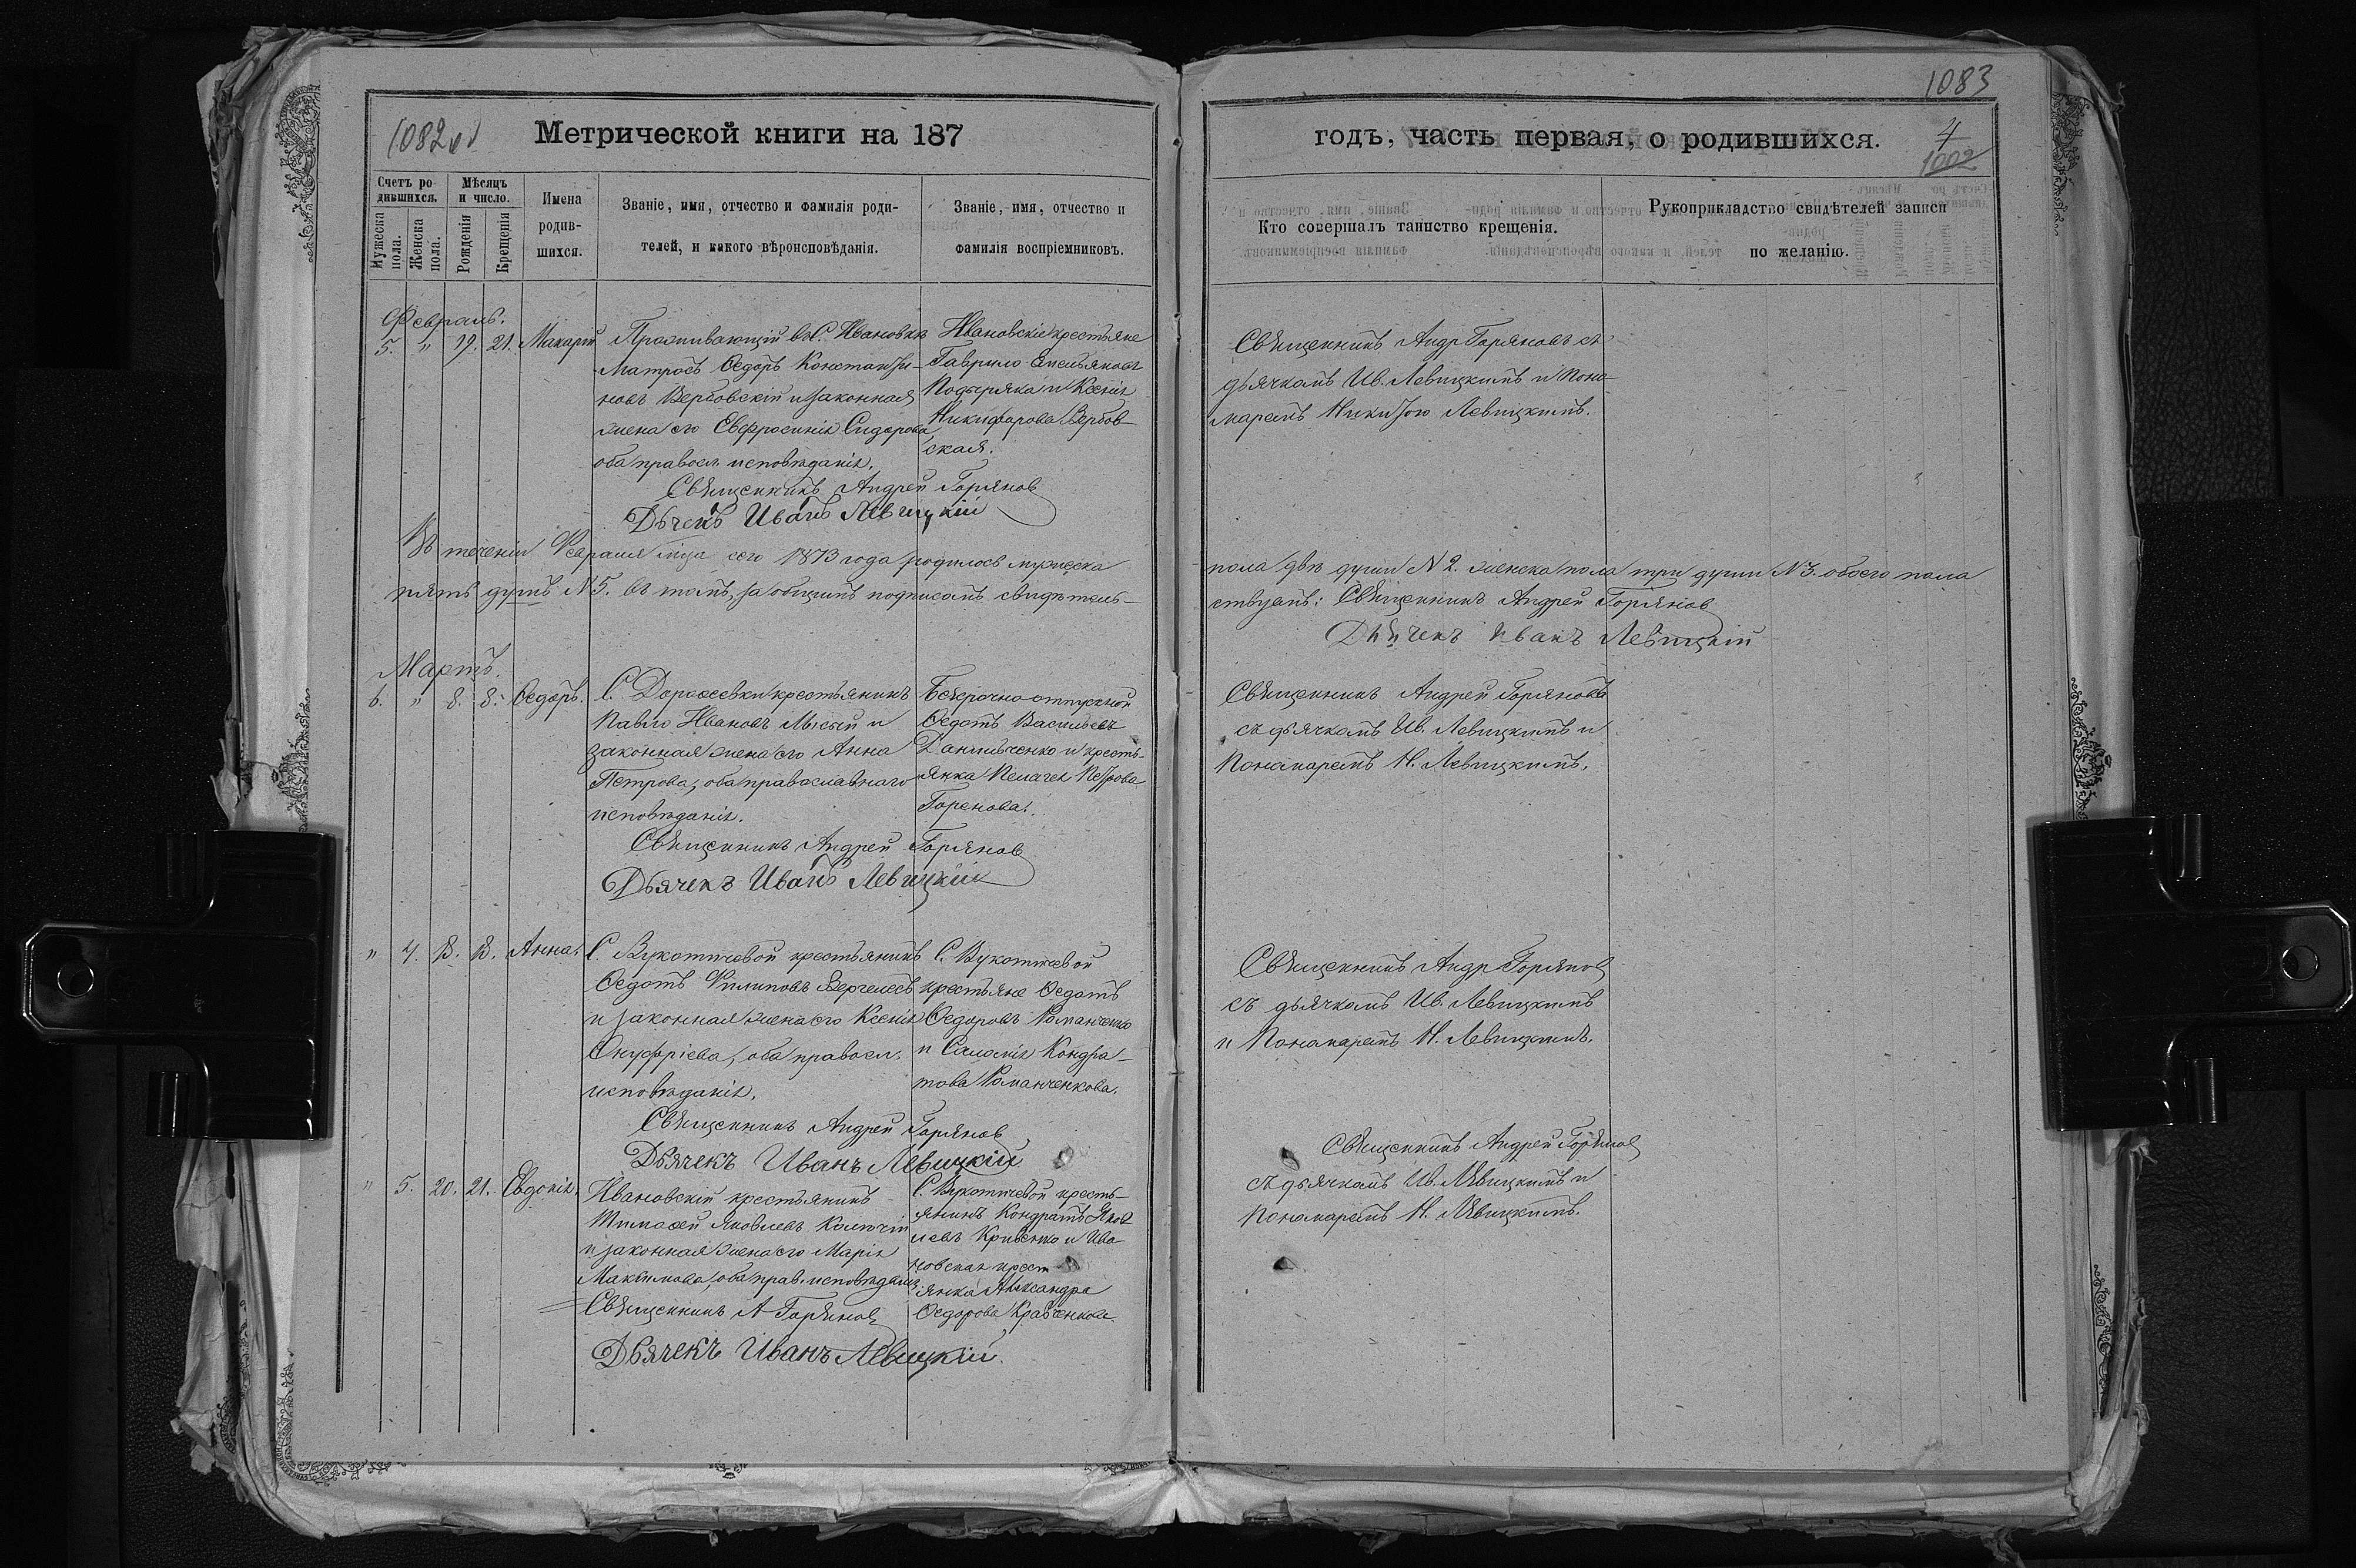 1083
1082об
Метрической книги на 187
годъ, часть первая, о родившихся.
4
1002
Счетъ ро
дившихся.
Мужеска
пола.
Женска
пола.
Мѣсяцъ
и число.
Рожденія
Крещенія
Имена
родив-
шихся.
Званіе, имя, отчество и фамилія роди-
телей, и какого вѣроисповѣданія.
Званіе, имя, отчество и
фамилія воспріемниковъ.
Кто совершалъ таинство крещенія.
Рукоприкладство свидѣтелей записи
по желанію.
Февраль.
5. " 19. 21. Макарій
Проживающій въ С. Ивановкѣ
Матросъ Ѳедоръ Константи-
новъ Вербовскій и законная
жена его Евфросинія Сидорова,
оба правосл. исповѣданія.
Ивановскіе крестьяне
Гаврило Емельяновъ
Подыряка и Ксенія
Никифорова Вербов-
ская.
Священникъ Андр Горяновъ съ
дьячкомъ Ив. Левицкимъ и Поно-
маремъ Никитою Левицкимъ.
Священникъ Андрей Горянов
Дячекъ Иванъ Левицкій
Въ теченіи Февраля мца сего 1873 года родилось мужеска
пола двѣ души № 2. женска пола три души № 3. обоего пола
пять душъ № 5. въ томъ, за общимъ подписомъ свидѣтель-
ствуемъ: Священникъ Андрей Горянов
Дьячекъ Иванъ Левицкій
Мартъ.
6. " 8. 8. Ѳедоръ.
С. Дорофеевки крестьянинъ
Павло Ивановъ Лысый и
законная жена его Анна
Петрова, оба православнаго
исповѣданія.
Безсрочно отпускной
Ѳедотъ Васильевъ
Данильченко и кресть-
янка Пелагея Петрова
Горенова.
Священникъ Андрей Горяновъ
съ дьячкомъ Ив. Левицкимъ и
Пономаремъ Н. Левицкимъ.
Священникъ Андрей Горянов
Дьячекъ Иванъ Левицкій
" 4. 18. 18. Анна.
С. Вукотичевой крестьянинъ
Ѳедотъ Филиповъ Вергелесъ
и законная жена его Ксенія
Онуфріева, оба правосл.
исповѣданія.
С. Вукотичевой
крестьяне Ѳедотъ
Ѳедоровъ Романченко
и Саломія Кондра-
това Романченкова.
Священникъ Андр Горянов
съ дьячкомъ Ив. Левицкимъ
и Пономаремъ Н. Левицкимъ.
Священникъ Андрей Горянов
Дьячекъ Иванъ Левицкій
" 5. 20. 21. Евдокія.
Ивановскій крестьянинъ
Тимофей Яковлевъ
и законная жена его Марія
Максимова, оба прав. исповѣдан.
С. Вукотичевой кресть-
янинъ Кондратъ Яков
левъ Кривенко и Ива
новская крест
янка Александра
Ѳедорова Кравченкова.
Священникъ Андрей Горянов
съ дьячкомъ Ив. Левицкимъ и
Пономаремъ Н. Левицкимъ.
Священникъ А Горянов
Дьячекъ Иванъ Левицкій.